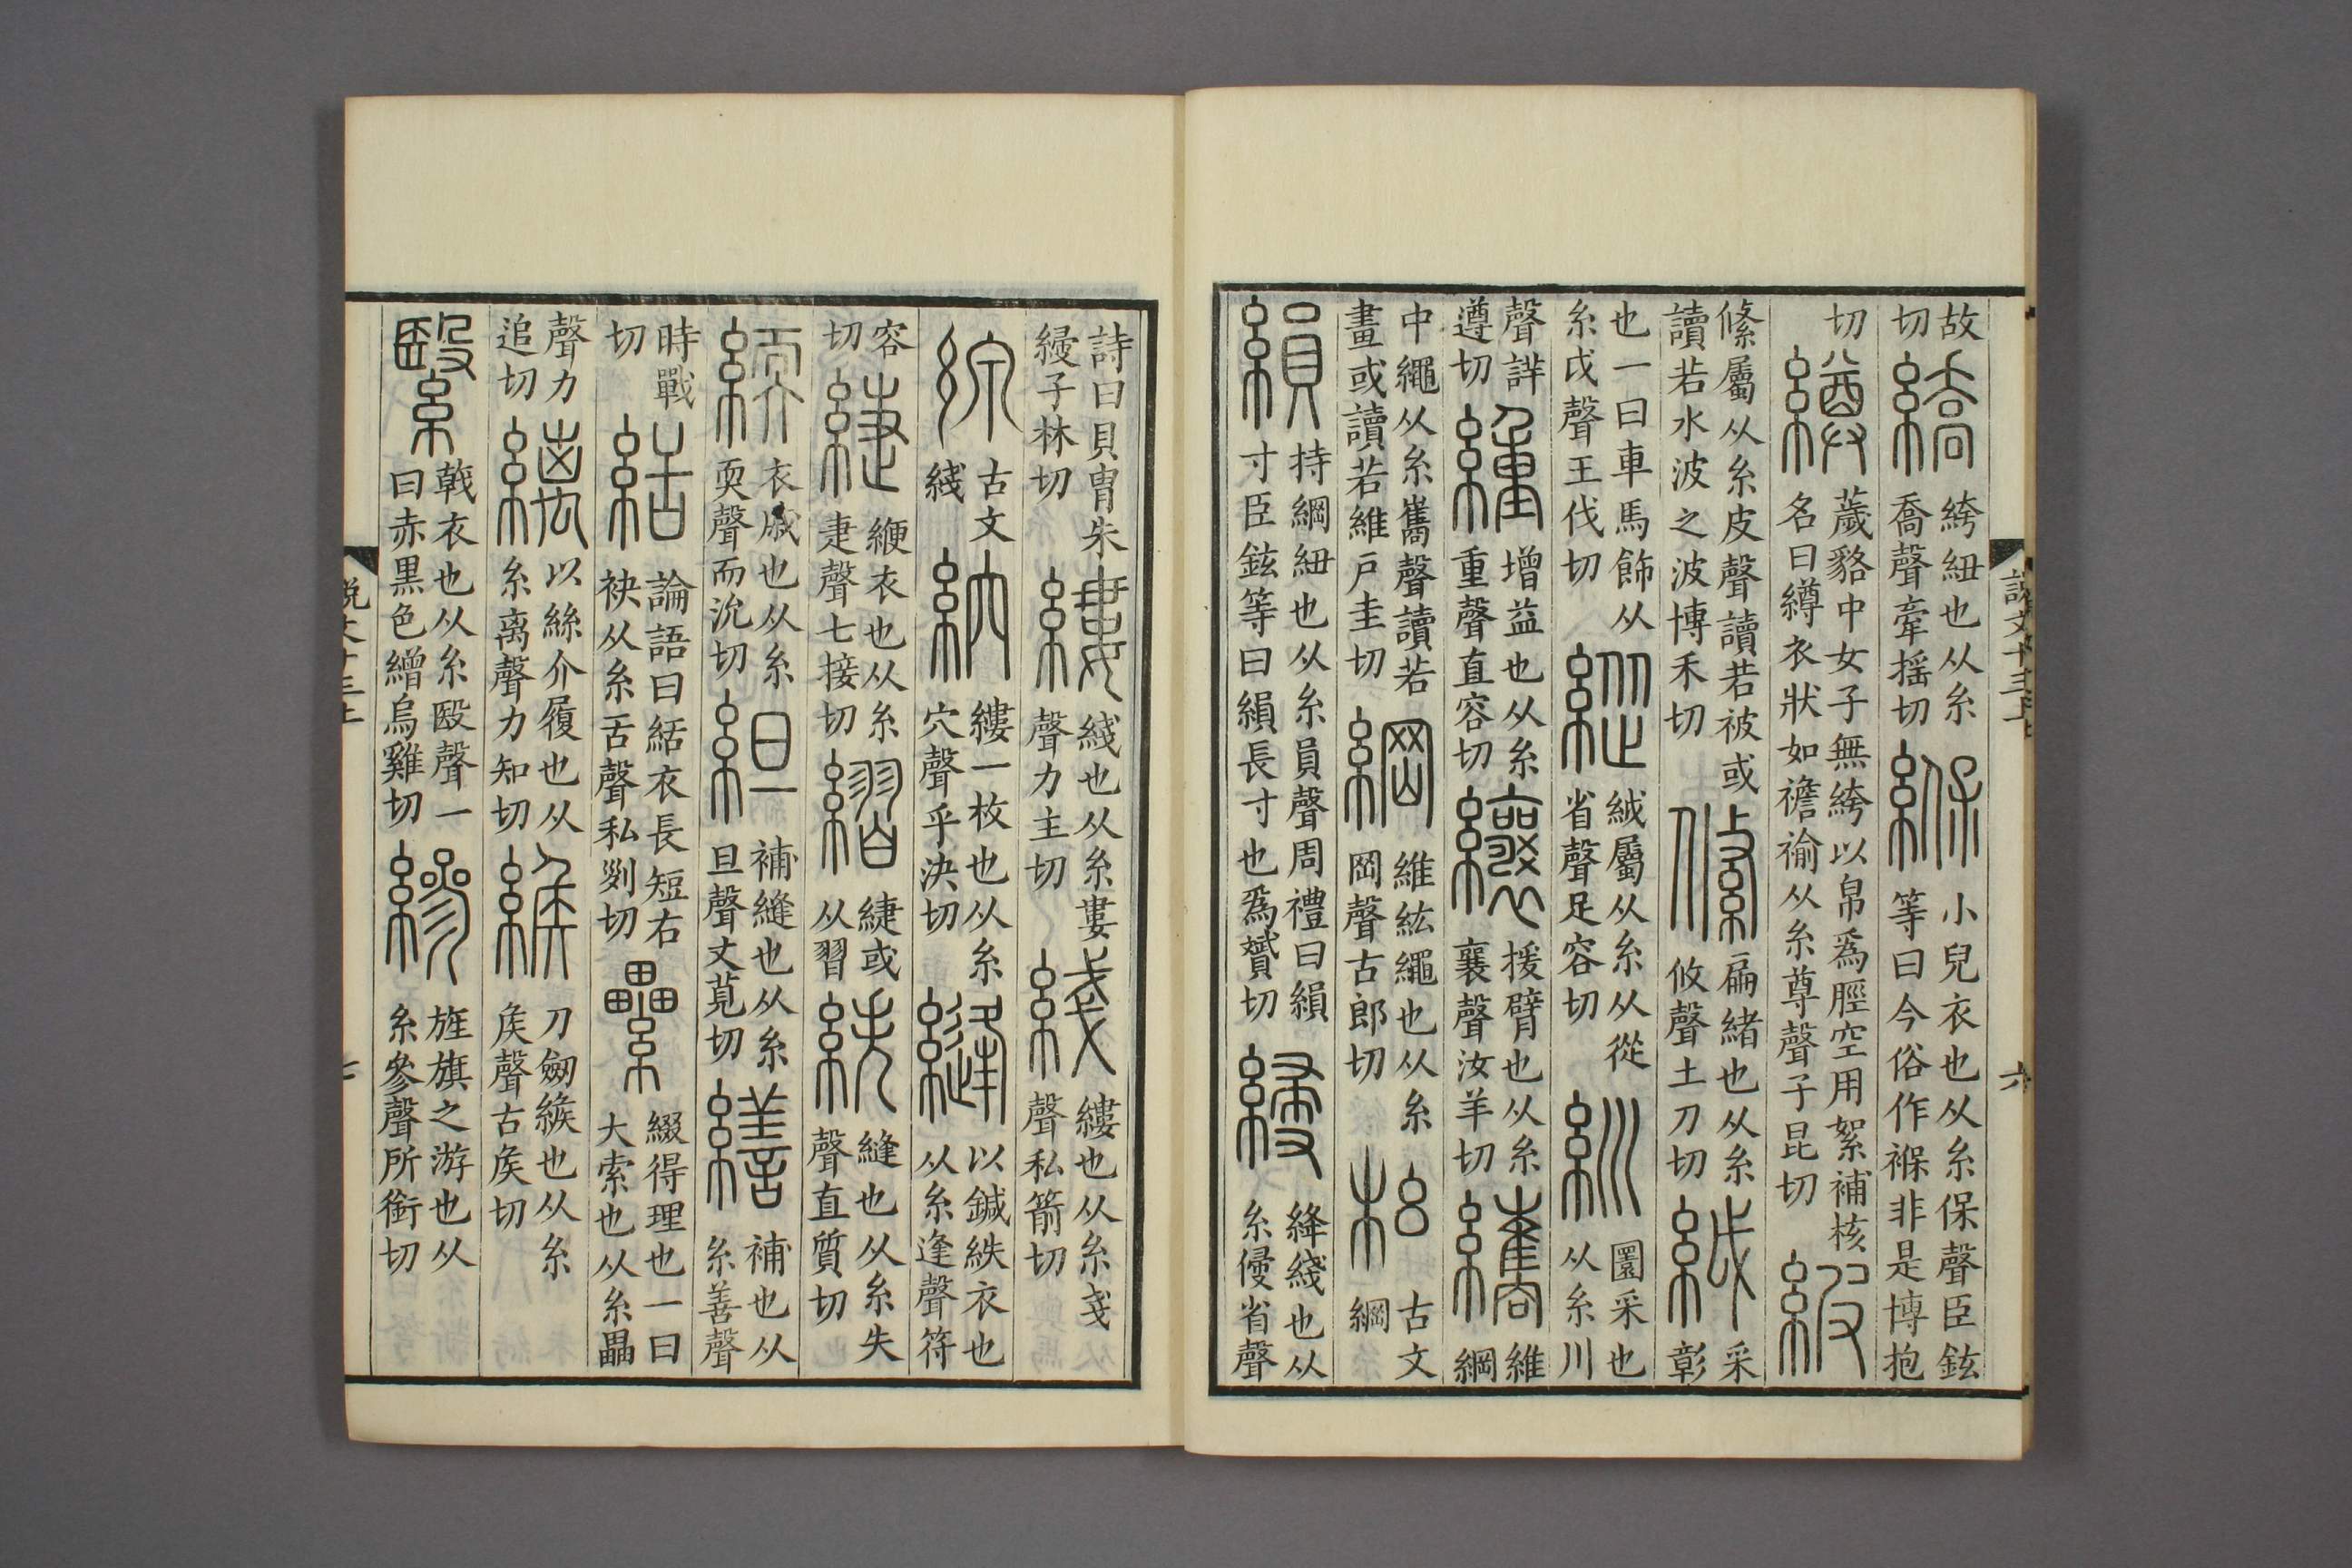 說文十三上
六
故切繑絝紐也从糸喬聲牽搖切緥小兒衣也从糸保聲臣鉉等曰今俗作褓非是博抱
切繜薉貉中女子無絝以帛爲脛空用絮補核名曰繜衣狀如襜褕从糸尊聲子昆切紴
絛屬从糸皮聲讀若被或讀若水波之波博禾切絛扁緒也从糸攸聲土刀切絨采彰
也一曰車馬飾从糸戉聲王伐切䋲絨屬从糸从從省聲足容切紃圜采也从糸川
聲詳遵切緟增益也从糸重聲直容切纕援臂也从糸襄聲汝羊切纗維綱
中繩从糸巂聲讀若畫或讀若維戶圭切綱維紘繩也从糸岡聲古郎切古文綱
縜持綱紐也从糸員聲周禮曰縜寸臣鉉等曰縜長寸也爲贇切綅絳綫也从糸侵省聲
詩曰貝冑朱綅子林切縷綫也从糸婁聲力主切綫縷也从糸戔聲私箭切
線古文綫䋉縷一枚也从糸穴聲乎決切縫以鍼紩衣也从糸逢聲符
容切緁緶衣也从糸疌聲七接切緁或从習紩縫也从糸失聲直質切
緛衣戚也从糸耎聲而沇切組補縫也从糸旦聲丈莧切繕補也从糸善聲
時戰切絬論語曰絬衣長短右袂从糸舌聲私列切纍綴得理也一曰大索也从糸畾
聲力追切縭以絲介履也从糸离聲力知切緱刀劒緱也从糸矦聲古矦切
繄戟衣也从糸殹聲一曰赤黒色繒烏雞切縿旌旗之游也从糸參聲所銜切
說文十三上
七